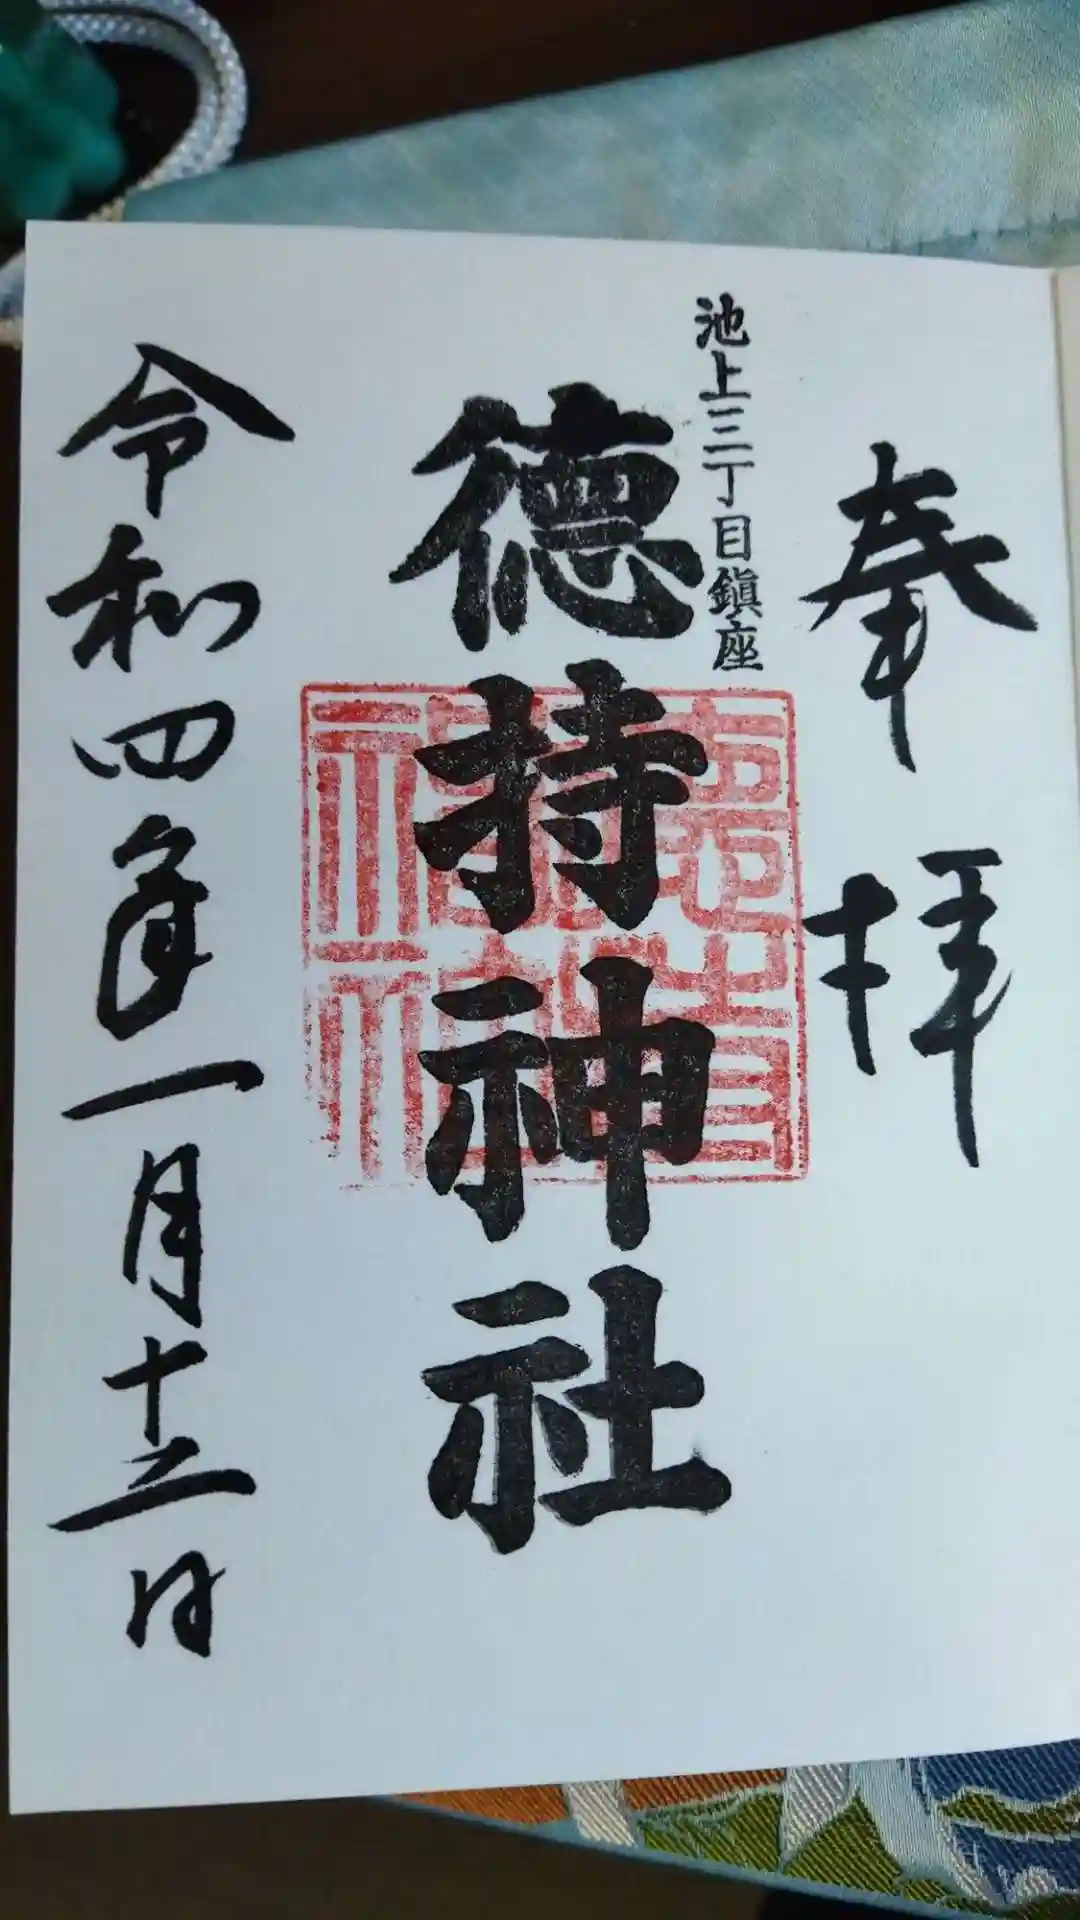 奉拝
池上三丁目鎮座
徳持神社
令和四年一月十二日